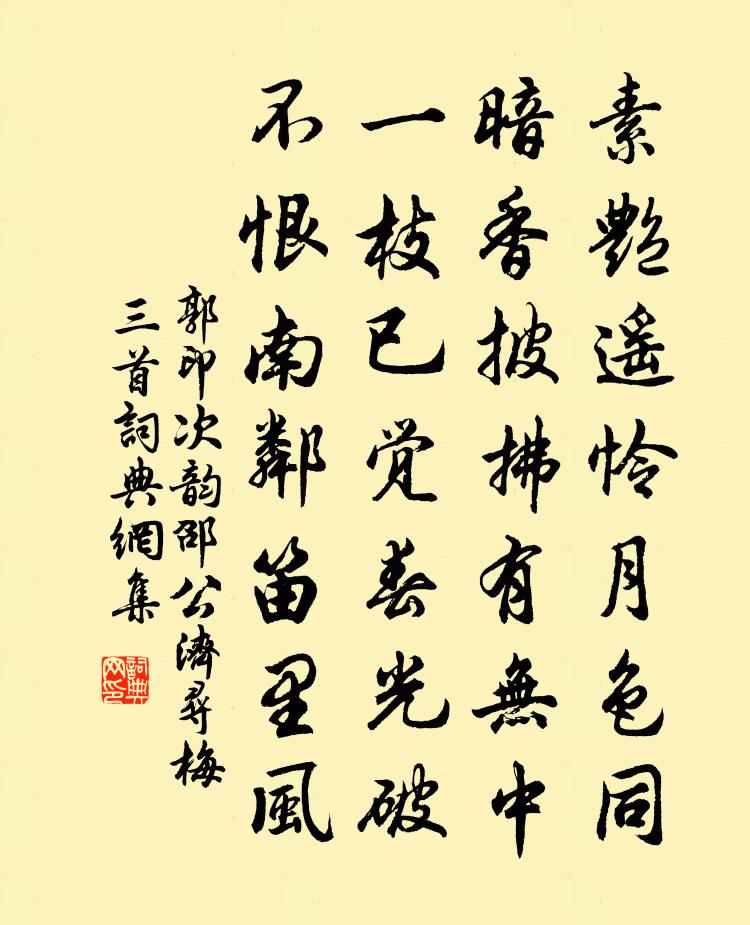 素艷遥怜月色同
暗香披拂有無中
一枝已觉春光破
不恨南鄰笛里風
郭印次韵邵公濟尋梅
三首詞典網集
詞典
网印